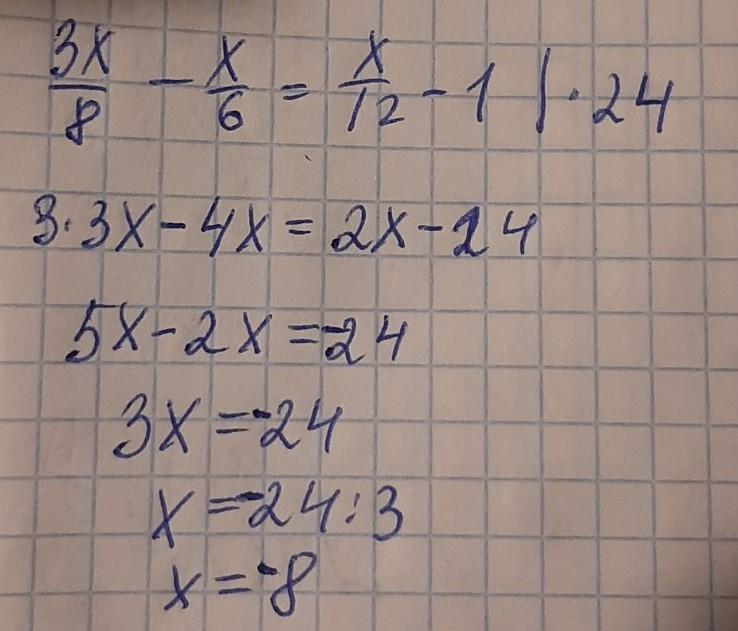 3x/8 - x/6 = x/12 - 1 | · 24
3·3x - 4x = 2x - 24
5x - 2x = -24
3x = -24
x = -24 : 3
x = -8